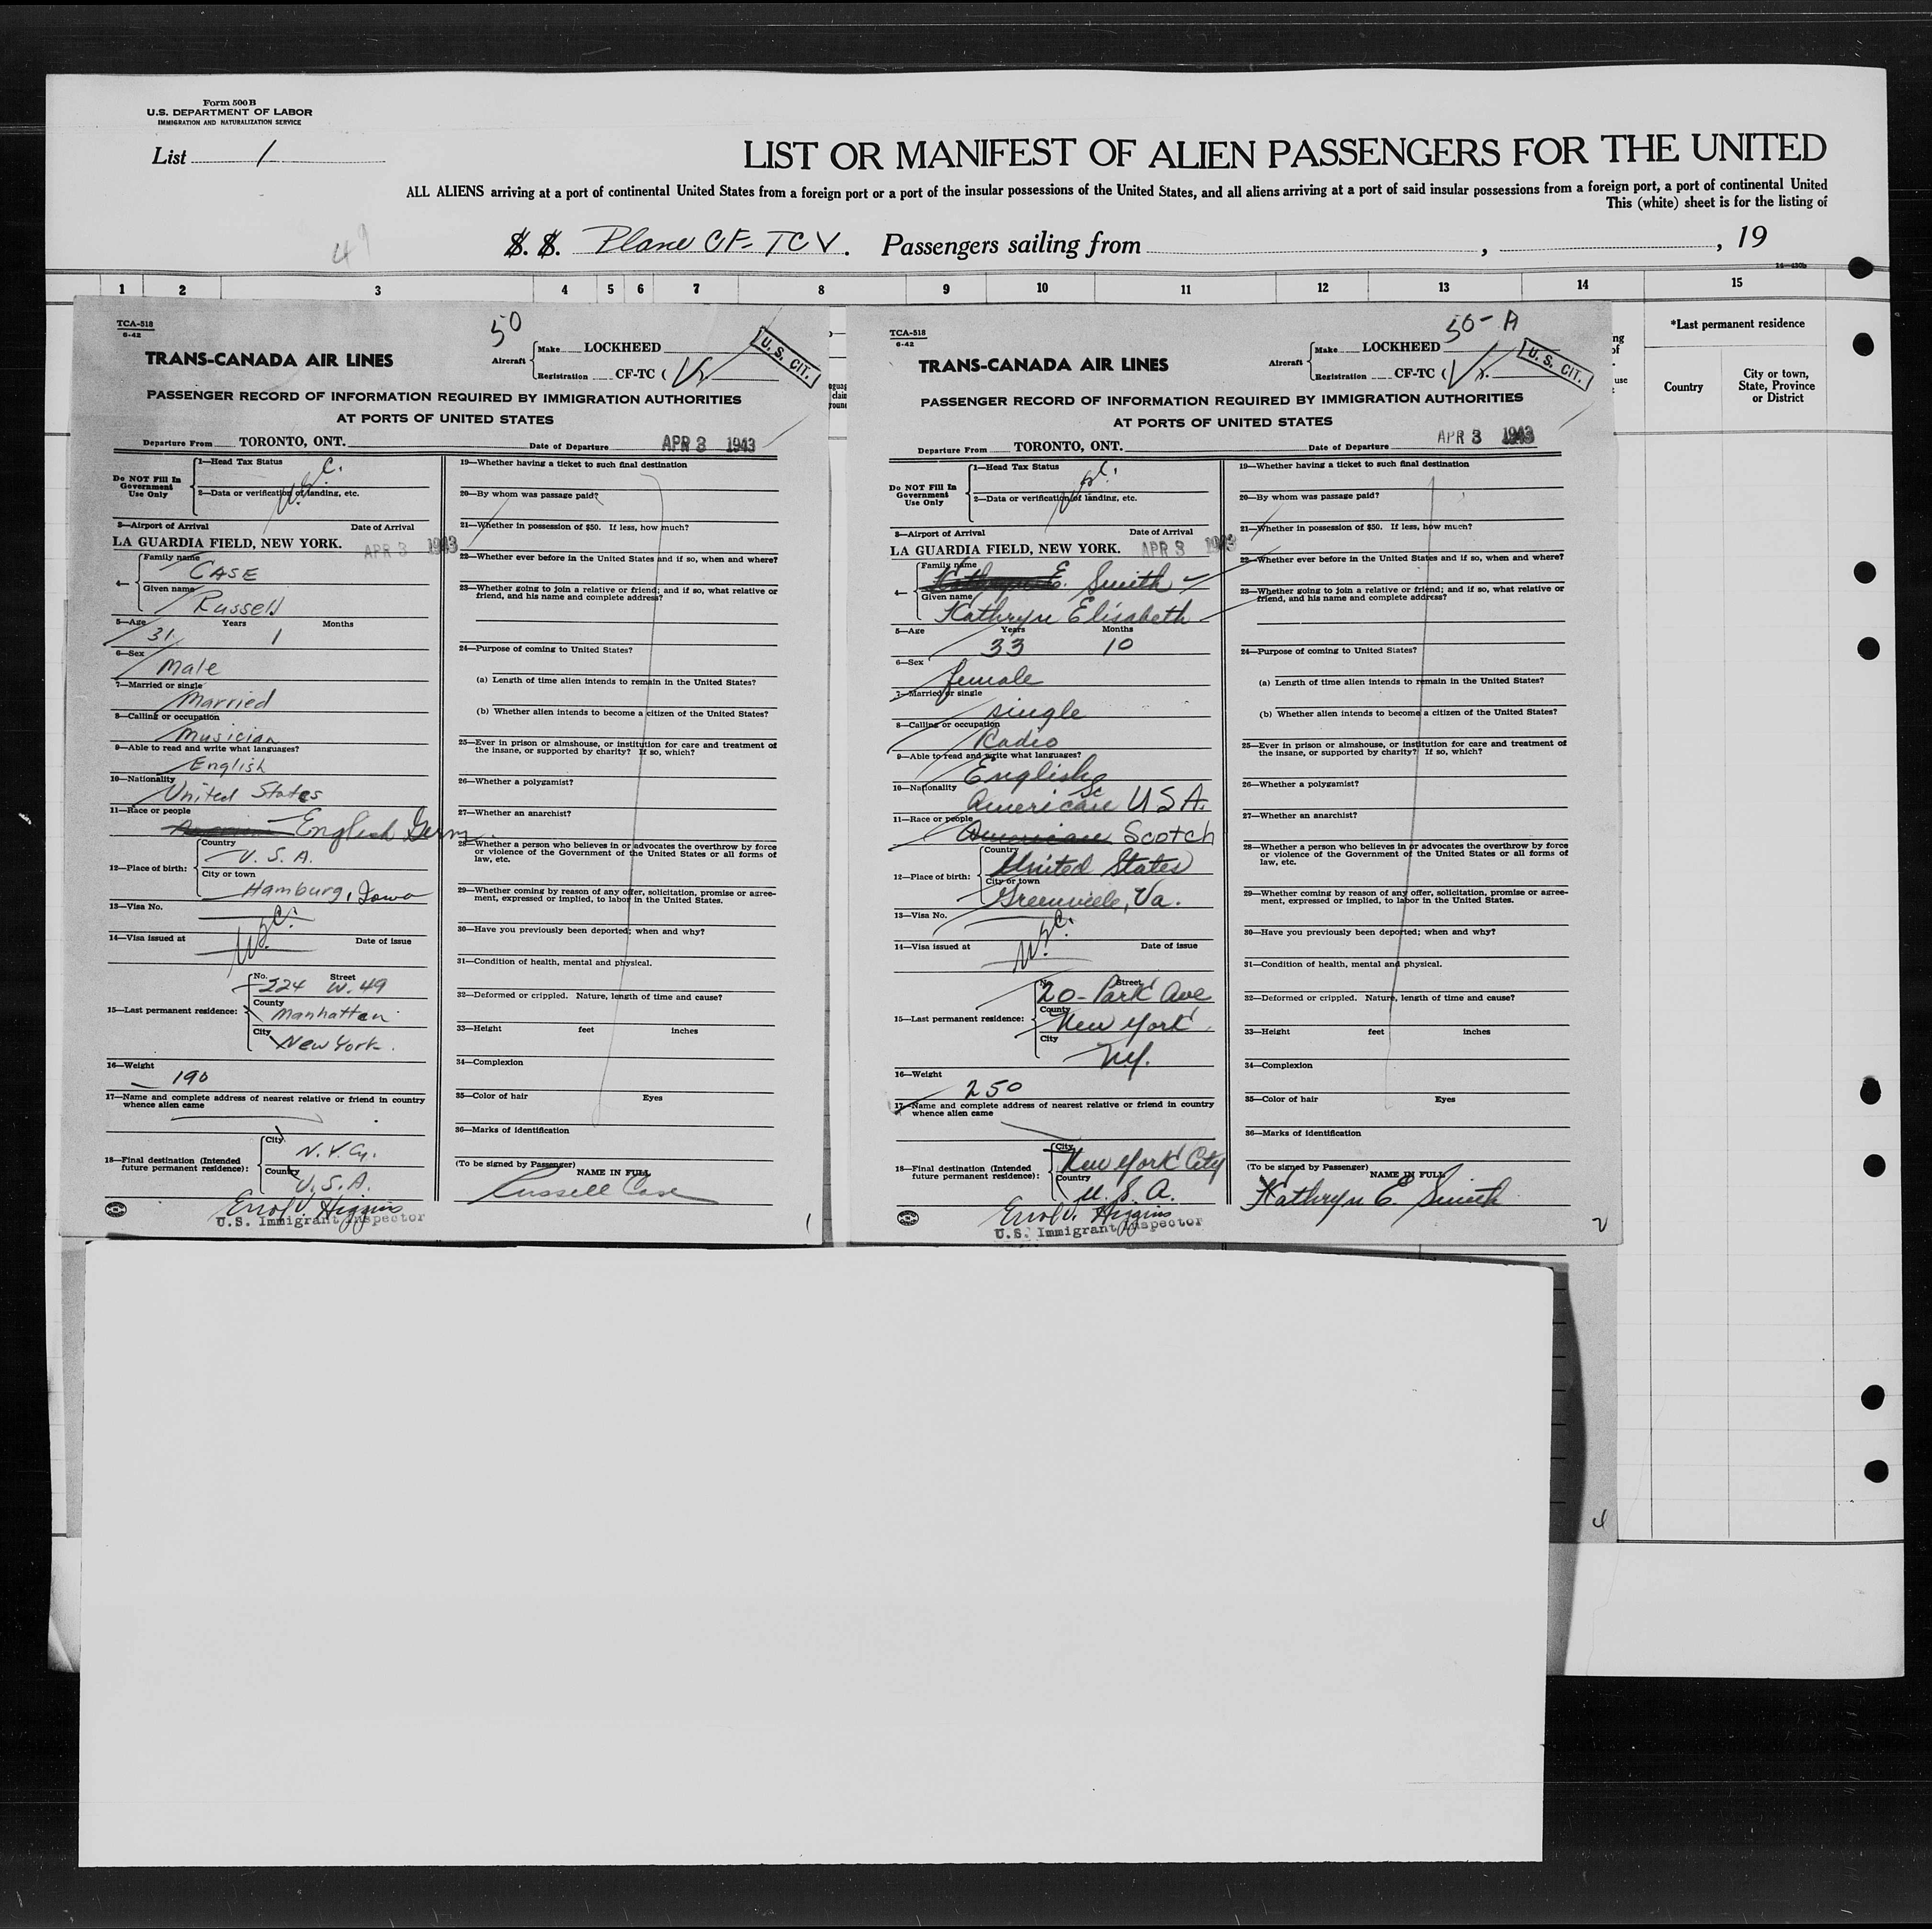 Form 500B
U.S. DEPARTMENT OF LABOR
IMMIGRATION AND NATURALIZATION SERVICE
List 1
LIST OR MANIFEST OF ALIEN PASSENGERS FOR THE UNITED
ALL ALIENS arriving at a port of continental United States from a foreign port or a port of the insular possessions of the United States, and all aliens arriving at a port of said insular possessions from a foreign port, a port of continental United
This (white) sheet is for the listing of
49
S. S. Plane CF-TCV. Passengers sailing from , , 19
1 2 3 4 5 6 7 8 9 10 11 12 13 14 15
*Last permanent residence
Country
City or town, State, Province or District
TCA-518
6-42
50
TRANS-CANADA AIR LINES
Aircraft
Make LOCKHEED
Registration CF-TC (V
U. S. CIT.
PASSENGER RECORD OF INFORMATION REQUIRED BY IMMIGRATION AUTHORITIES
AT PORTS OF UNITED STATES
Departure From TORONTO, ONT. Date of Departure APR 3 1943
Do NOT Fill In Government Use Only
1—Head Tax Status
U.S.C.
2—Data or verification of landing, etc.
3—Airport of Arrival Date of Arrival
LA GUARDIA FIELD, NEW YORK. APR 3 1943
4—
Family name
CASE
Given name
Russell
5—Age Years Months
31 1
6—Sex
Male
7—Married or single
Married
8—Calling or occupation
Musician
9—Able to read and write what languages?
English
10—Nationality
United States
11—Race or people
English Germ.
12—Place of birth:
Country
U. S. A.
City or town
Hamburg, Iowa
13—Visa No.
U.S.C.
14—Visa issued at Date of issue
15—Last permanent residence:
No. Street
224 W. 49
County
Manhattan
City
New York.
16—Weight
190
17—Name and complete address of nearest relative or friend in country whence alien came
18—Final destination (Intended future permanent residence):
City
N.Y. Cy.
Country
U.S.A.
Errol V. Higgins
U.S. Immigrant Inspector
19—Whether having a ticket to such final destination
20—By whom was passage paid?
21—Whether in possession of $50. If less, how much?
22—Whether ever before in the United States and if so, when and where?
23—Whether going to join a relative or friend; and if so, what relative or
friend, and his name and complete address?
24—Purpose of coming to United States?
(a) Length of time alien intends to remain in the United States?
(b) Whether alien intends to become a citizen of the United States?
25—Ever in prison or almshouse, or institution for care and treatment of
the insane, or supported by charity? If so, which?
26—Whether a polygamist?
27—Whether an anarchist?
28—Whether a person who believes in or advocates the overthrow by force
or violence of the Government of the United States or all forms of
law, etc.
29—Whether coming by reason of any offer, solicitation, promise or agree-
ment, expressed or implied, to labor in the United States.
30—Have you previously been deported; when and why?
31—Condition of health, mental and physical.
32—Deformed or crippled. Nature, length of time and cause?
33—Height feet inches
34—Complexion
35—Color of hair Eyes
36—Marks of identification
(To be signed by Passenger) NAME IN FULL
Russell Case
1
TCA-518
6-42
50-A
TRANS-CANADA AIR LINES
Aircraft
Make LOCKHEED
Registration CF-TC (V
U. S. CIT.
PASSENGER RECORD OF INFORMATION REQUIRED BY IMMIGRATION AUTHORITIES
AT PORTS OF UNITED STATES
Departure From TORONTO, ONT. Date of Departure APR 3 1943
Do NOT Fill In Government Use Only
1—Head Tax Status
2—Data or verification of landing, etc.
3—Airport of Arrival Date of Arrival
LA GUARDIA FIELD, NEW YORK. APR 3 1943
4—
Family name
Kathryn E. Smith
Given name
Kathryn Elisabeth
5—Age Years Months
33 10
6—Sex
female
7—Married or single
single
8—Calling or occupation
Radio
9—Able to read and write what languages?
English
10—Nationality
American USA.
11—Race or people
American Scotch
12—Place of birth:
Country
United States
City or town
Greenville, Va.
13—Visa No.
U.S.C.
14—Visa issued at Date of issue
15—Last permanent residence:
No. Street
20- Park Ave
County
New York
City
N.Y.
16—Weight
250
17—Name and complete address of nearest relative or friend in country whence alien came
18—Final destination (Intended future permanent residence):
City
New York City
Country
U. S. A.
Errol V. Higgins
U.S. Immigrant Inspector
19—Whether having a ticket to such final destination
20—By whom was passage paid?
21—Whether in possession of $50. If less, how much?
22—Whether ever before in the United States and if so, when and where?
23—Whether going to join a relative or friend; and if so, what relative or
friend, and his name and complete address?
24—Purpose of coming to United States?
(a) Length of time alien intends to remain in the United States?
(b) Whether alien intends to become a citizen of the United States?
25—Ever in prison or almshouse, or institution for care and treatment of
the insane, or supported by charity? If so, which?
26—Whether a polygamist?
27—Whether an anarchist?
28—Whether a person who believes in or advocates the overthrow by force
or violence of the Government of the United States or all forms of
law, etc.
29—Whether coming by reason of any offer, solicitation, promise or agree-
ment, expressed or implied, to labor in the United States.
30—Have you previously been deported; when and why?
31—Condition of health, mental and physical.
32—Deformed or crippled. Nature, length of time and cause?
33—Height feet inches
34—Complexion
35—Color of hair Eyes
36—Marks of identification
(To be signed by Passenger) NAME IN FULL
Kathryn E. Smith
2
4